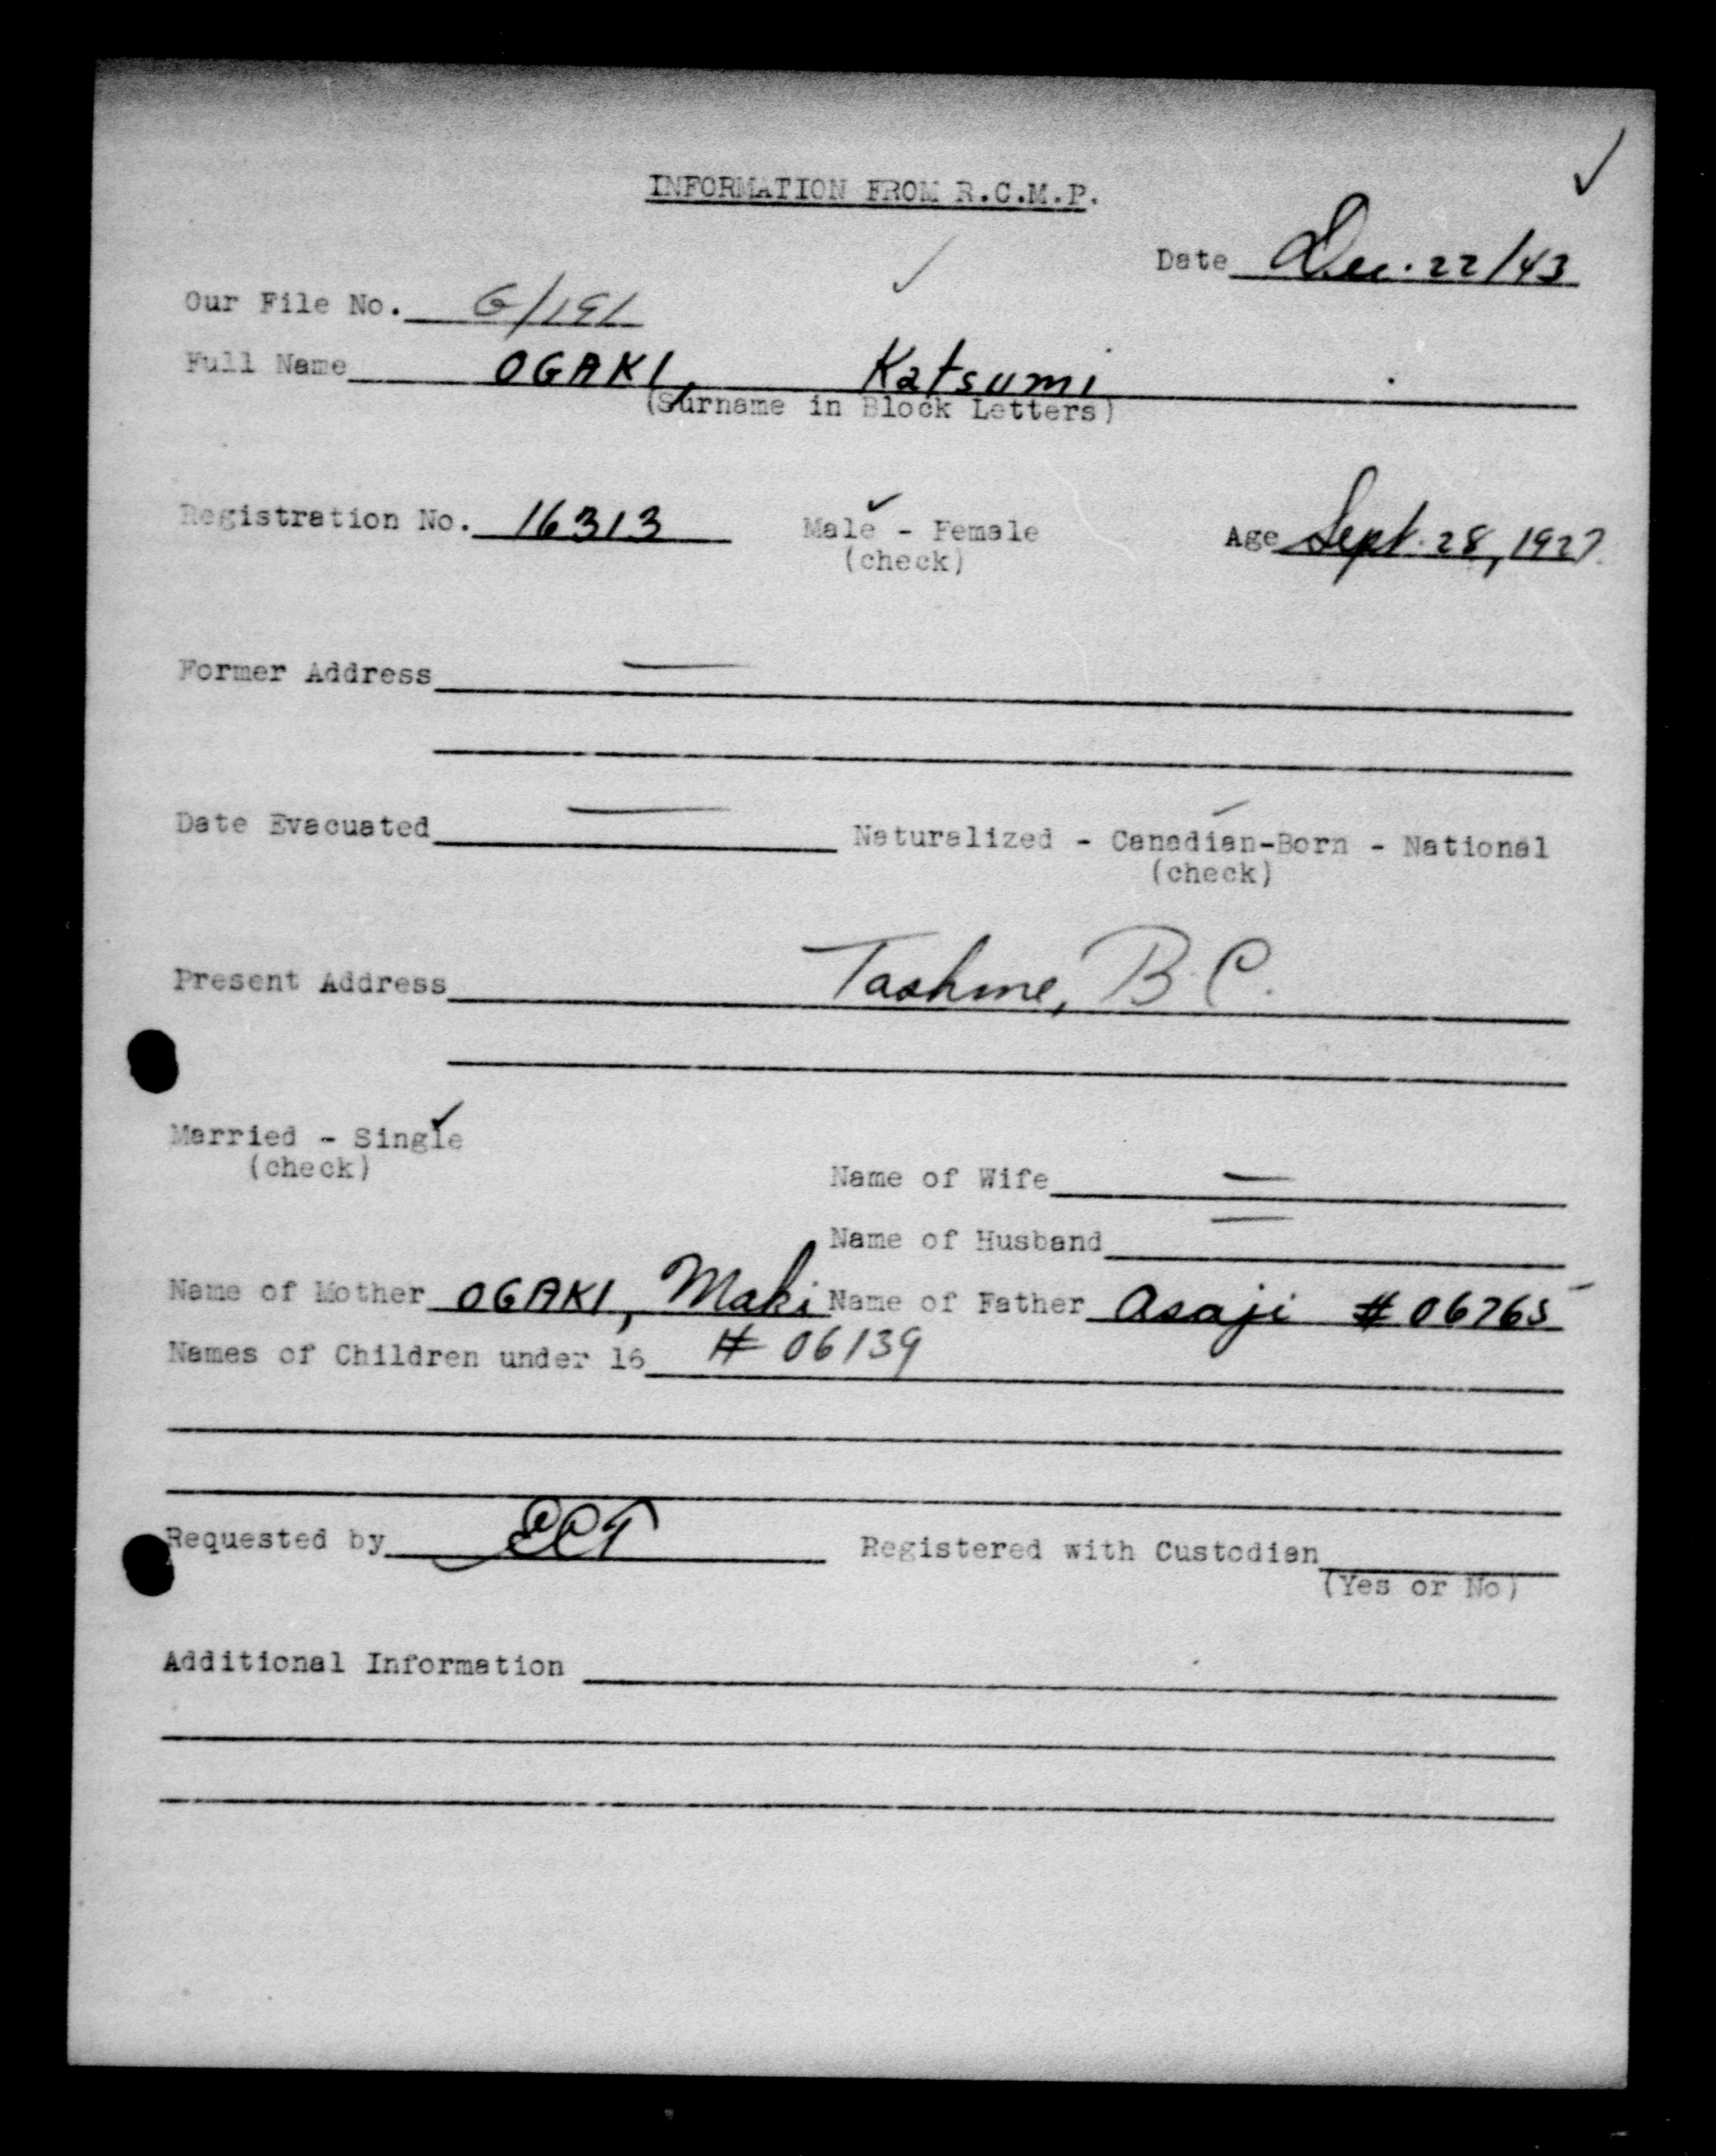 INFORMATION FROM R.C.M.P.
Date Dec. 22/43
Our File No.
Full Name OGAKI, Katsumi
(Surname in Block Letters)
Registration No. 16313 Male - Female Age Sept. 28, 1927
(check)
Former Address —
Date Evacuated — Naturalized - Canadian-Born - National
(check)
Present Address Tashme, B.C.
Married - Single
(check)
Name of Wife —
Name of Husband —
Name of Mother OGAKI, Maki Name of Father Asaji # 06765
Names of Children under 16 # 06139
Requested by Registered with Custodian
(Yes or No)
Additional Information